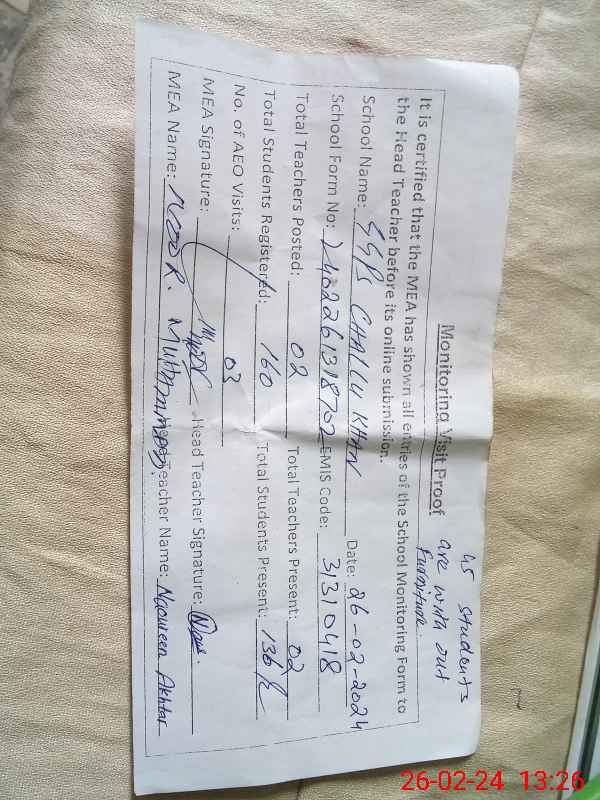 45 students
are with out
furniture.
Monitoring Visit Proof
It is certified that the MEA has shown all entries of the School Monitoring Form to
the Head Teacher before its online submission.
School Name: GGPS CHALLU KHAN Date: 26-02-2024
School Form No: 2402261318702 EMIS Code: 31310418
Total Teachers Posted: 02 Total Teachers Present: 02
Total Students Registered: 160 Total Students Present: 136
No. of AEO Visits: 03
MEA Signature: Head Teacher Signature:
MEA Name: NOOR. MUHAMMAD. Head Teacher Name: Nacureen Akhtar
26-02-24 13:26